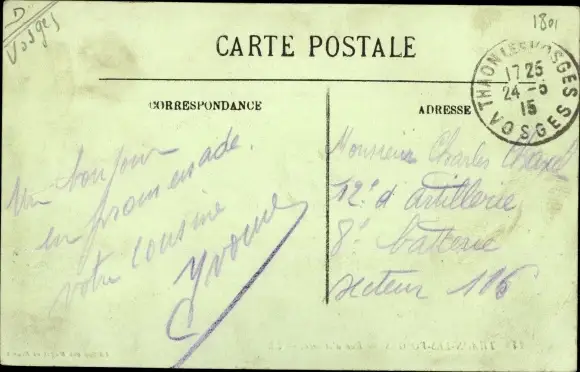 D
Vosges
1801
CARTE POSTALE
CORRESPONDANCE
ADRESSE
THAON LES VOSGES
17 25
24 - 5
15
VOSGES
Un bonjour
en promenade.
votre cousine
Yvonne
Monsieur Charles
12e d'artillerie
8e batterie
secteur 116